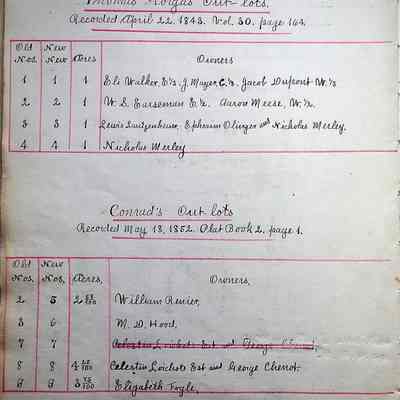 Thomas Out-lots.
Recorded April 22. 1843. Vol. 30. page 164.
Old Nos. New Nos. Acres Owners
1 1 1 Eli Walker, E⅓. J. Mayer, C.⅓. Jacob Dupont W.⅓
2 2 1 W. S. Earseman E½. Aaron Meese, W.½.
3 3 1 Lewis Ephraim Olinger and Nicholas Merley.
4 4 1 Nicholas Merley
Conrad's Out-lots
Recorded May 18, 1852. Plat Book 2. page 1.
Old Nos. New Nos. Acres. Owners,
2 5 2 William Renier,
3 6 M. D. Hood,
7 7 Celestin Loichots Est and George
8 8 4 Celestin Loichots Est and George Chenot.
9 9 3 Elizabeth Fogle,